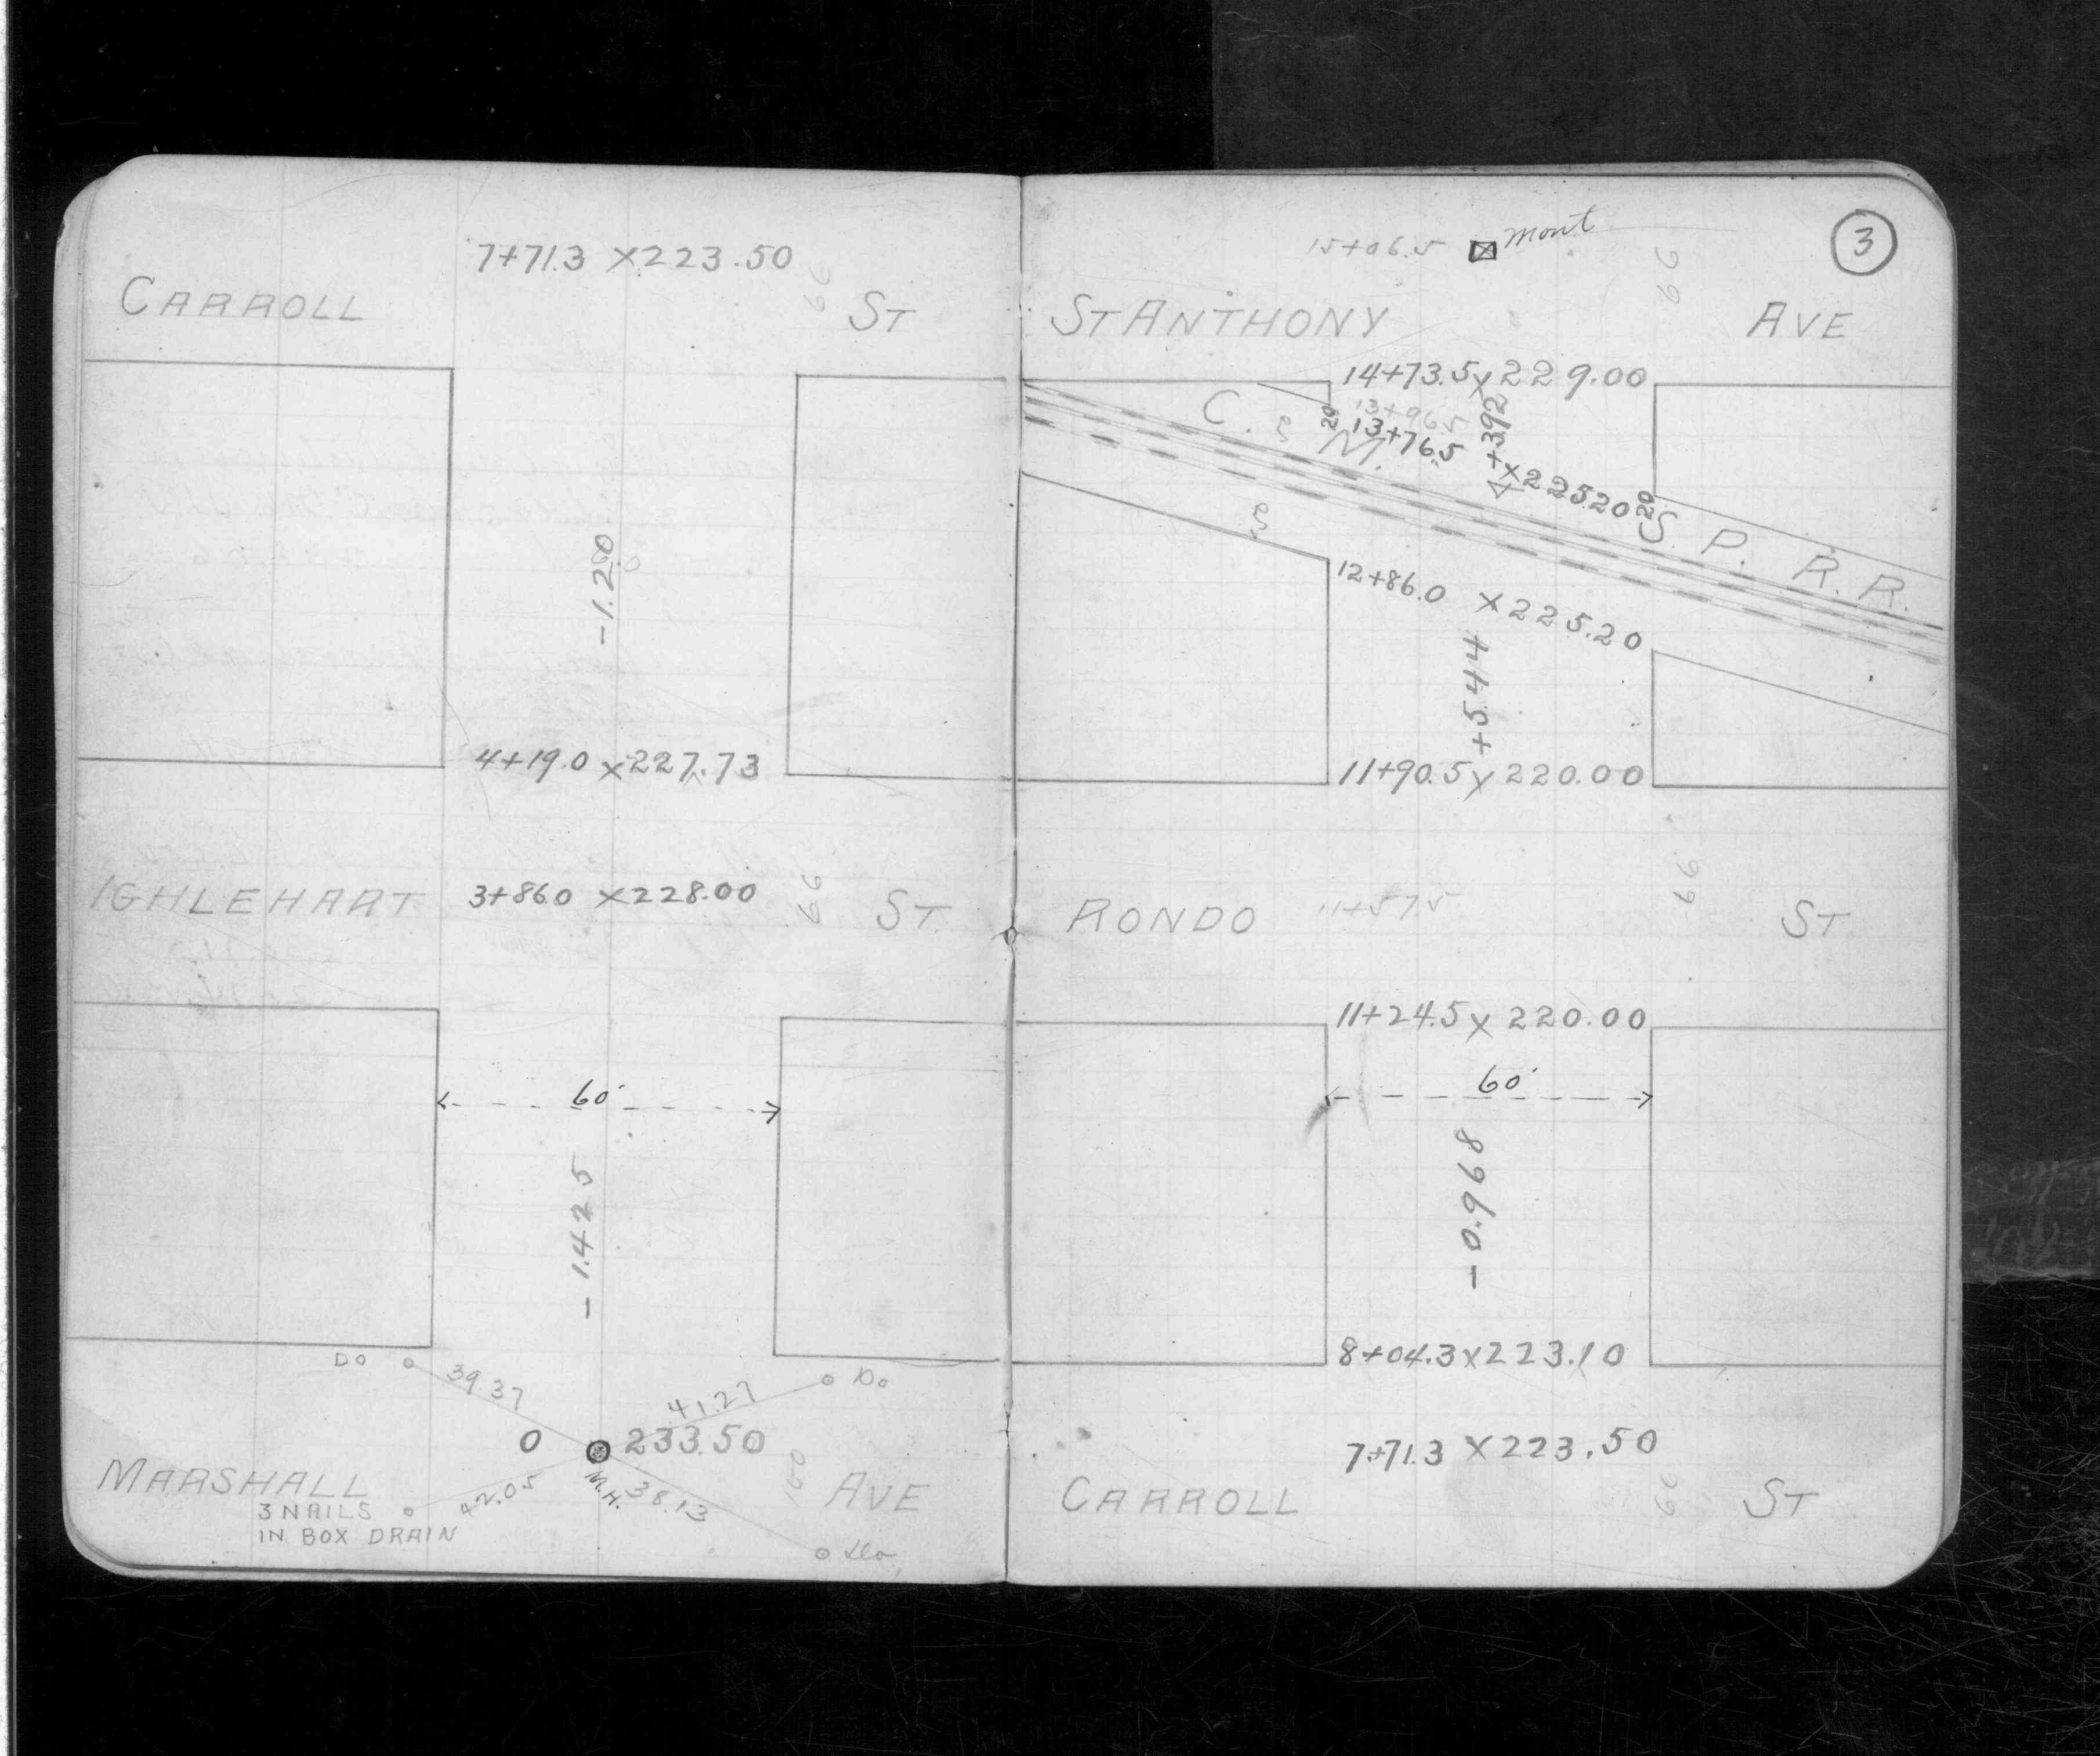 7+71.3 X 223.50
66
CARROLL ST
-1.20
4+19.0 X 227.73
IGHLEHART 3+86.0 X 228.00 66 ST.
60'
-1.425
DO 39.37 41.27 Do
0 233.50
M.H.
MARSHALL 100 AVE
3 NAILS 42.05 38.13
IN BOX DRAIN
Do
3
15+06.5 Mont
66
ST ANTHONY AVE
14+73.5 X 229.00
C. 20 13+96.5
M. 13+76.5 +3.92
X 225.20 20
S. P. R. R.
12+86.0 X 225.20
+5.44
11+90.5 X 220.00
66
RONDO 11+57.5 ST
11+24.5 X 220.00
60'
-0.968
8+04.3 X 223.10
7+71.3 X 223.50
CARROLL 66 ST